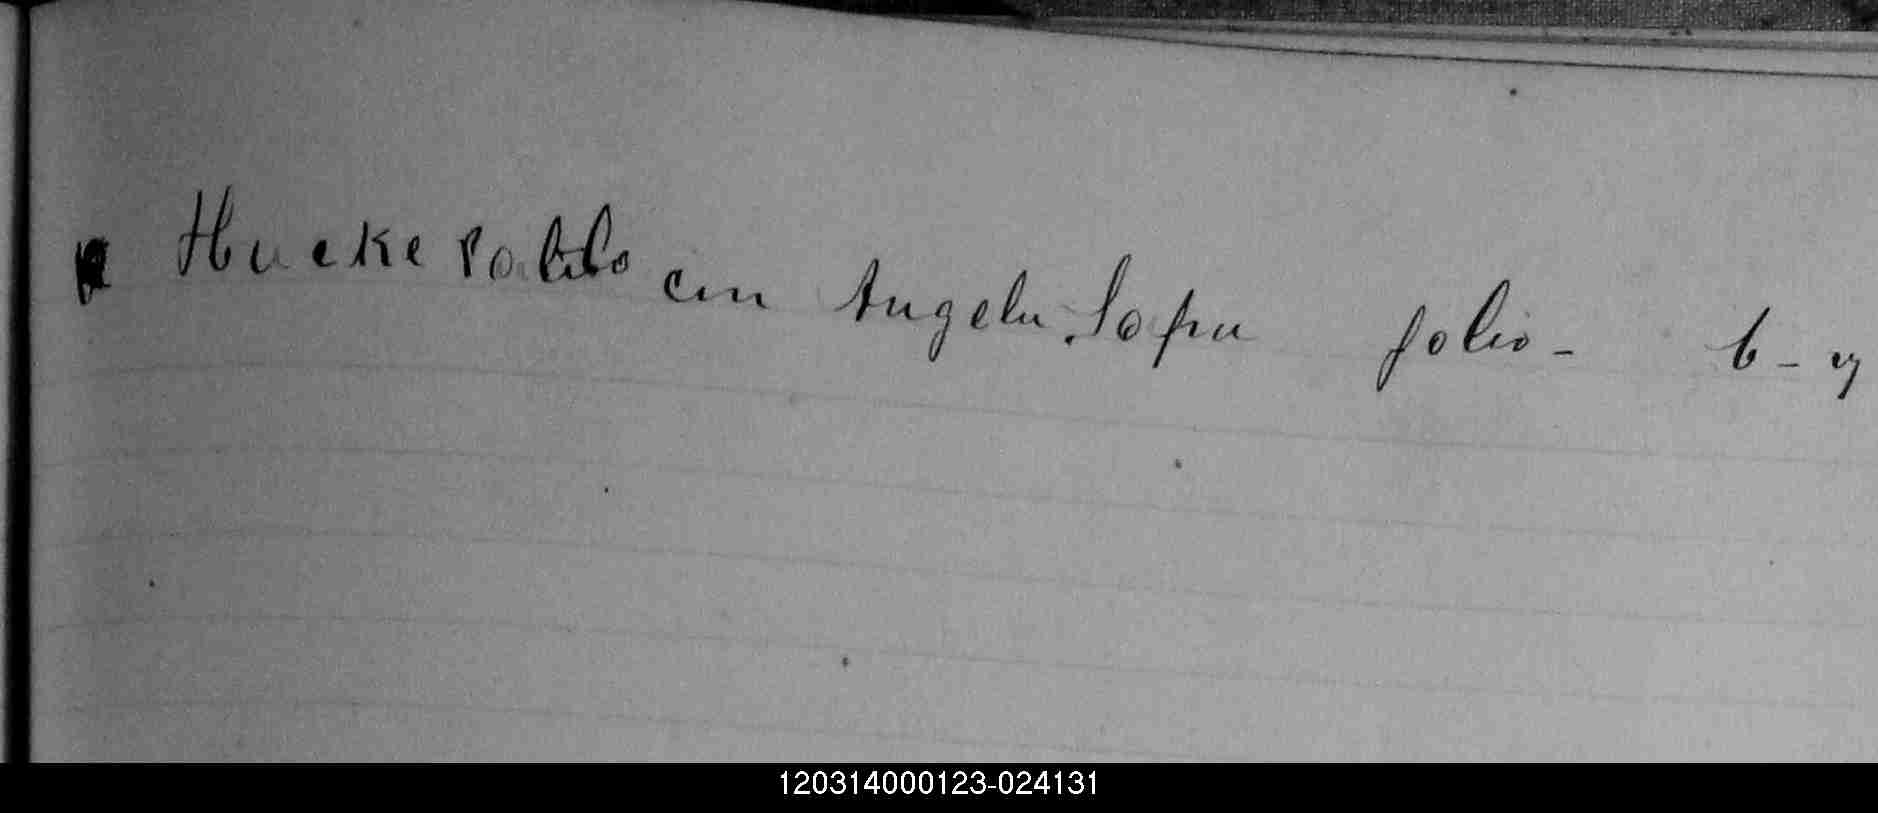 Hucke Pablo con Angela Sapu folio - 6 - y
120314000123-024131